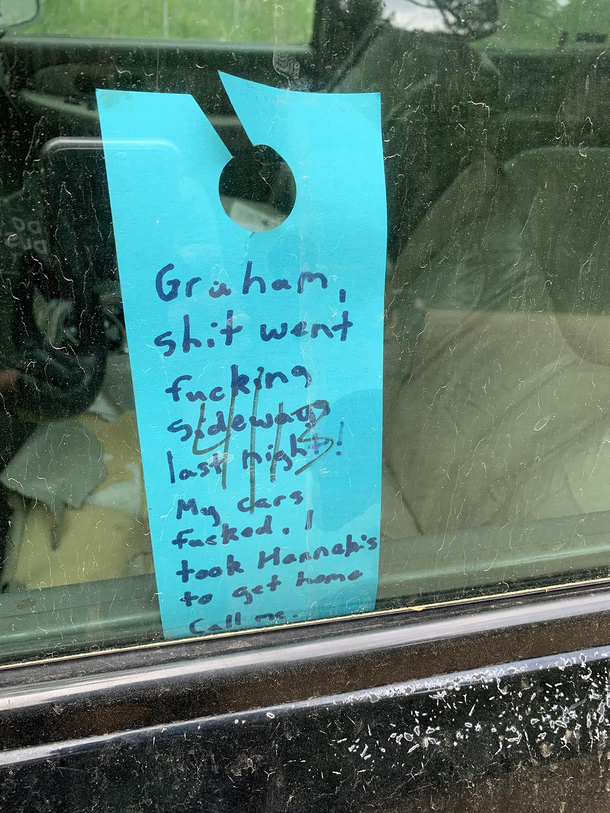 Graham,
shit went
fucking
sideways
last night!
My cars
fucked. I
took Hannah's
to get home
Call me.